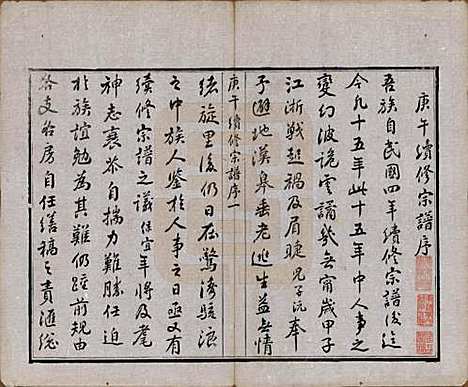 庚午續修宗譜序
吾族自民國四年續修宗譜後迄
今凡十五年此十五年中人事之
變幻波詭雲譎幾無甯歲甲子
江浙戰起禍及眉睫兒子沅奉
予避地漢皋垂老逃生益無情
庚午續修宗譜序一
緒旋里後仍日在驚濤駭浪
之中族人鑒於人事之日亟又有
續修宗譜之議佳宜年將及耄
神志衰苶自揣力難勝任迫
於族誼勉為其難仍踵前規由
各支各房自任繕稿之責滙總